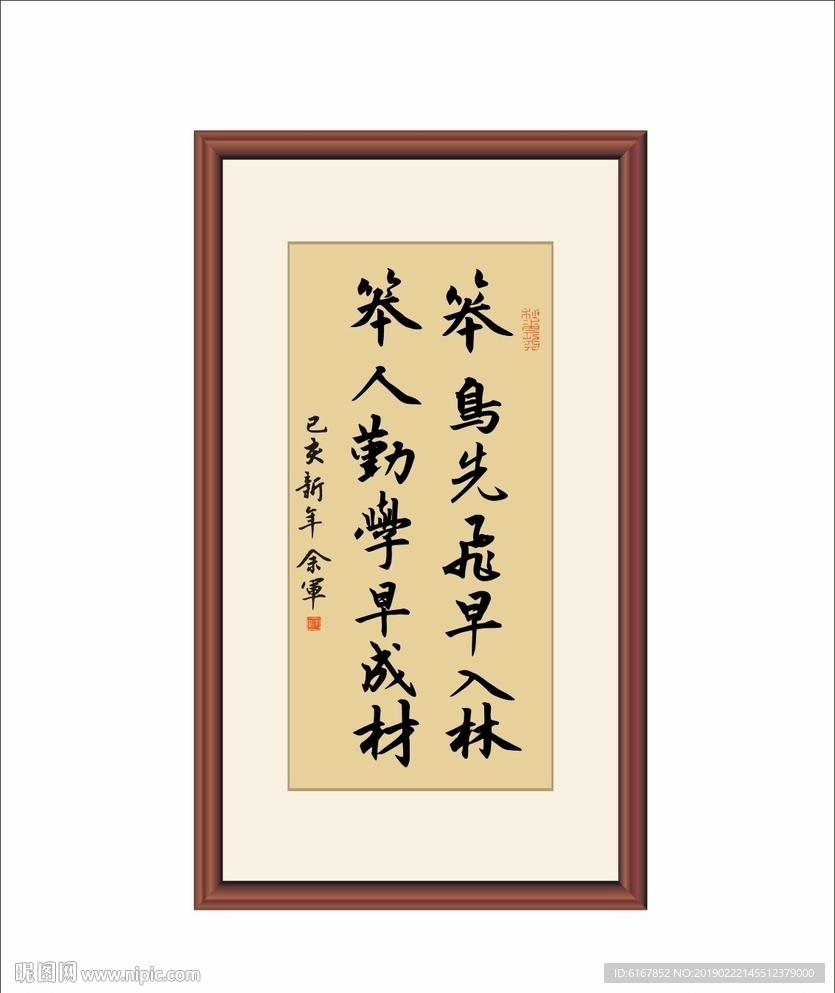 笨鳥先飛早入林
笨人勤學早成材
己亥新年 余軍
昵图网 www.nipic.com
ID:6167852 NO:20190222145512379000